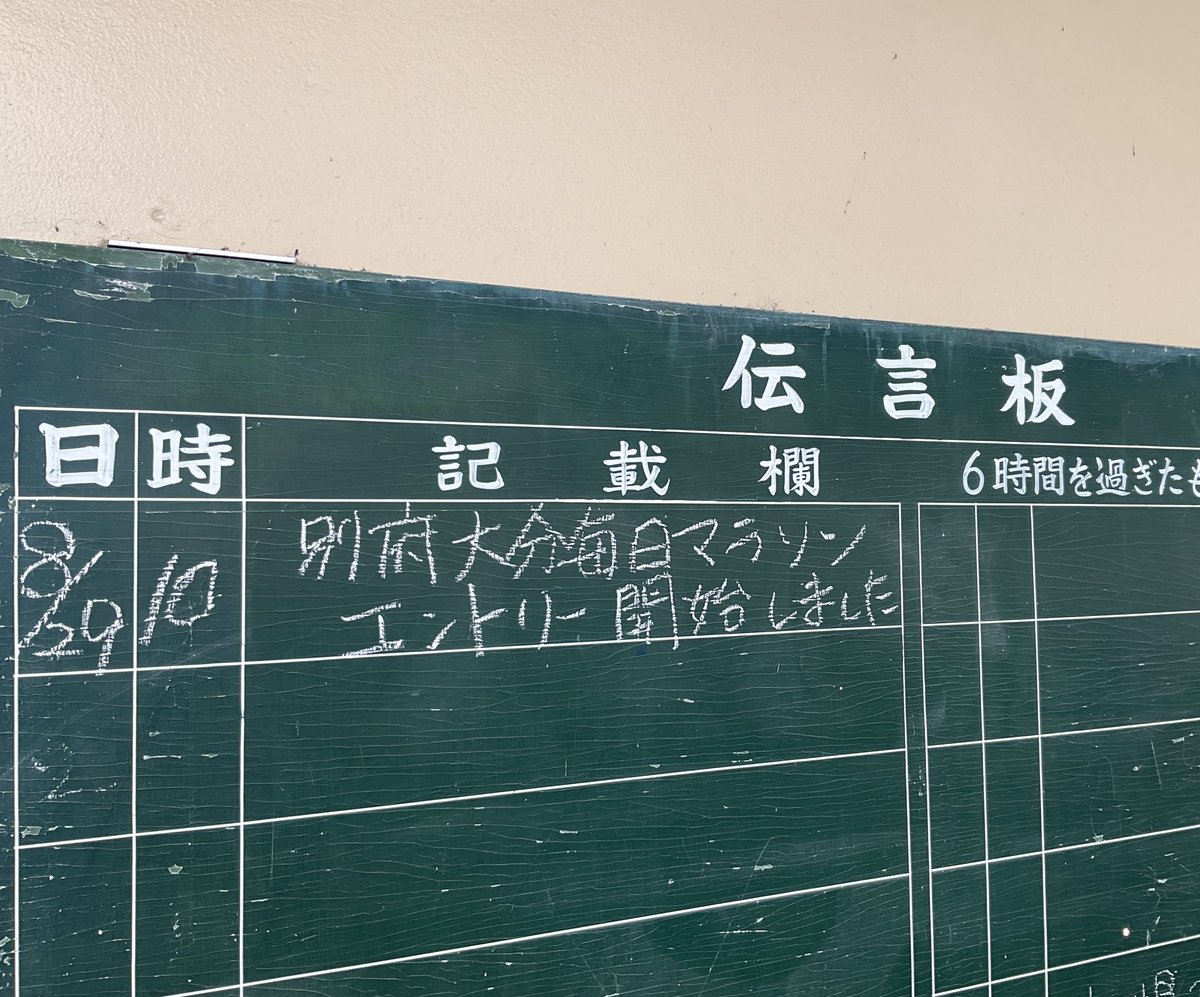 伝言板
日 時 記載欄 6時間を過ぎたも
8/29 10 別府大分毎日マラソン
エントリー開始しました